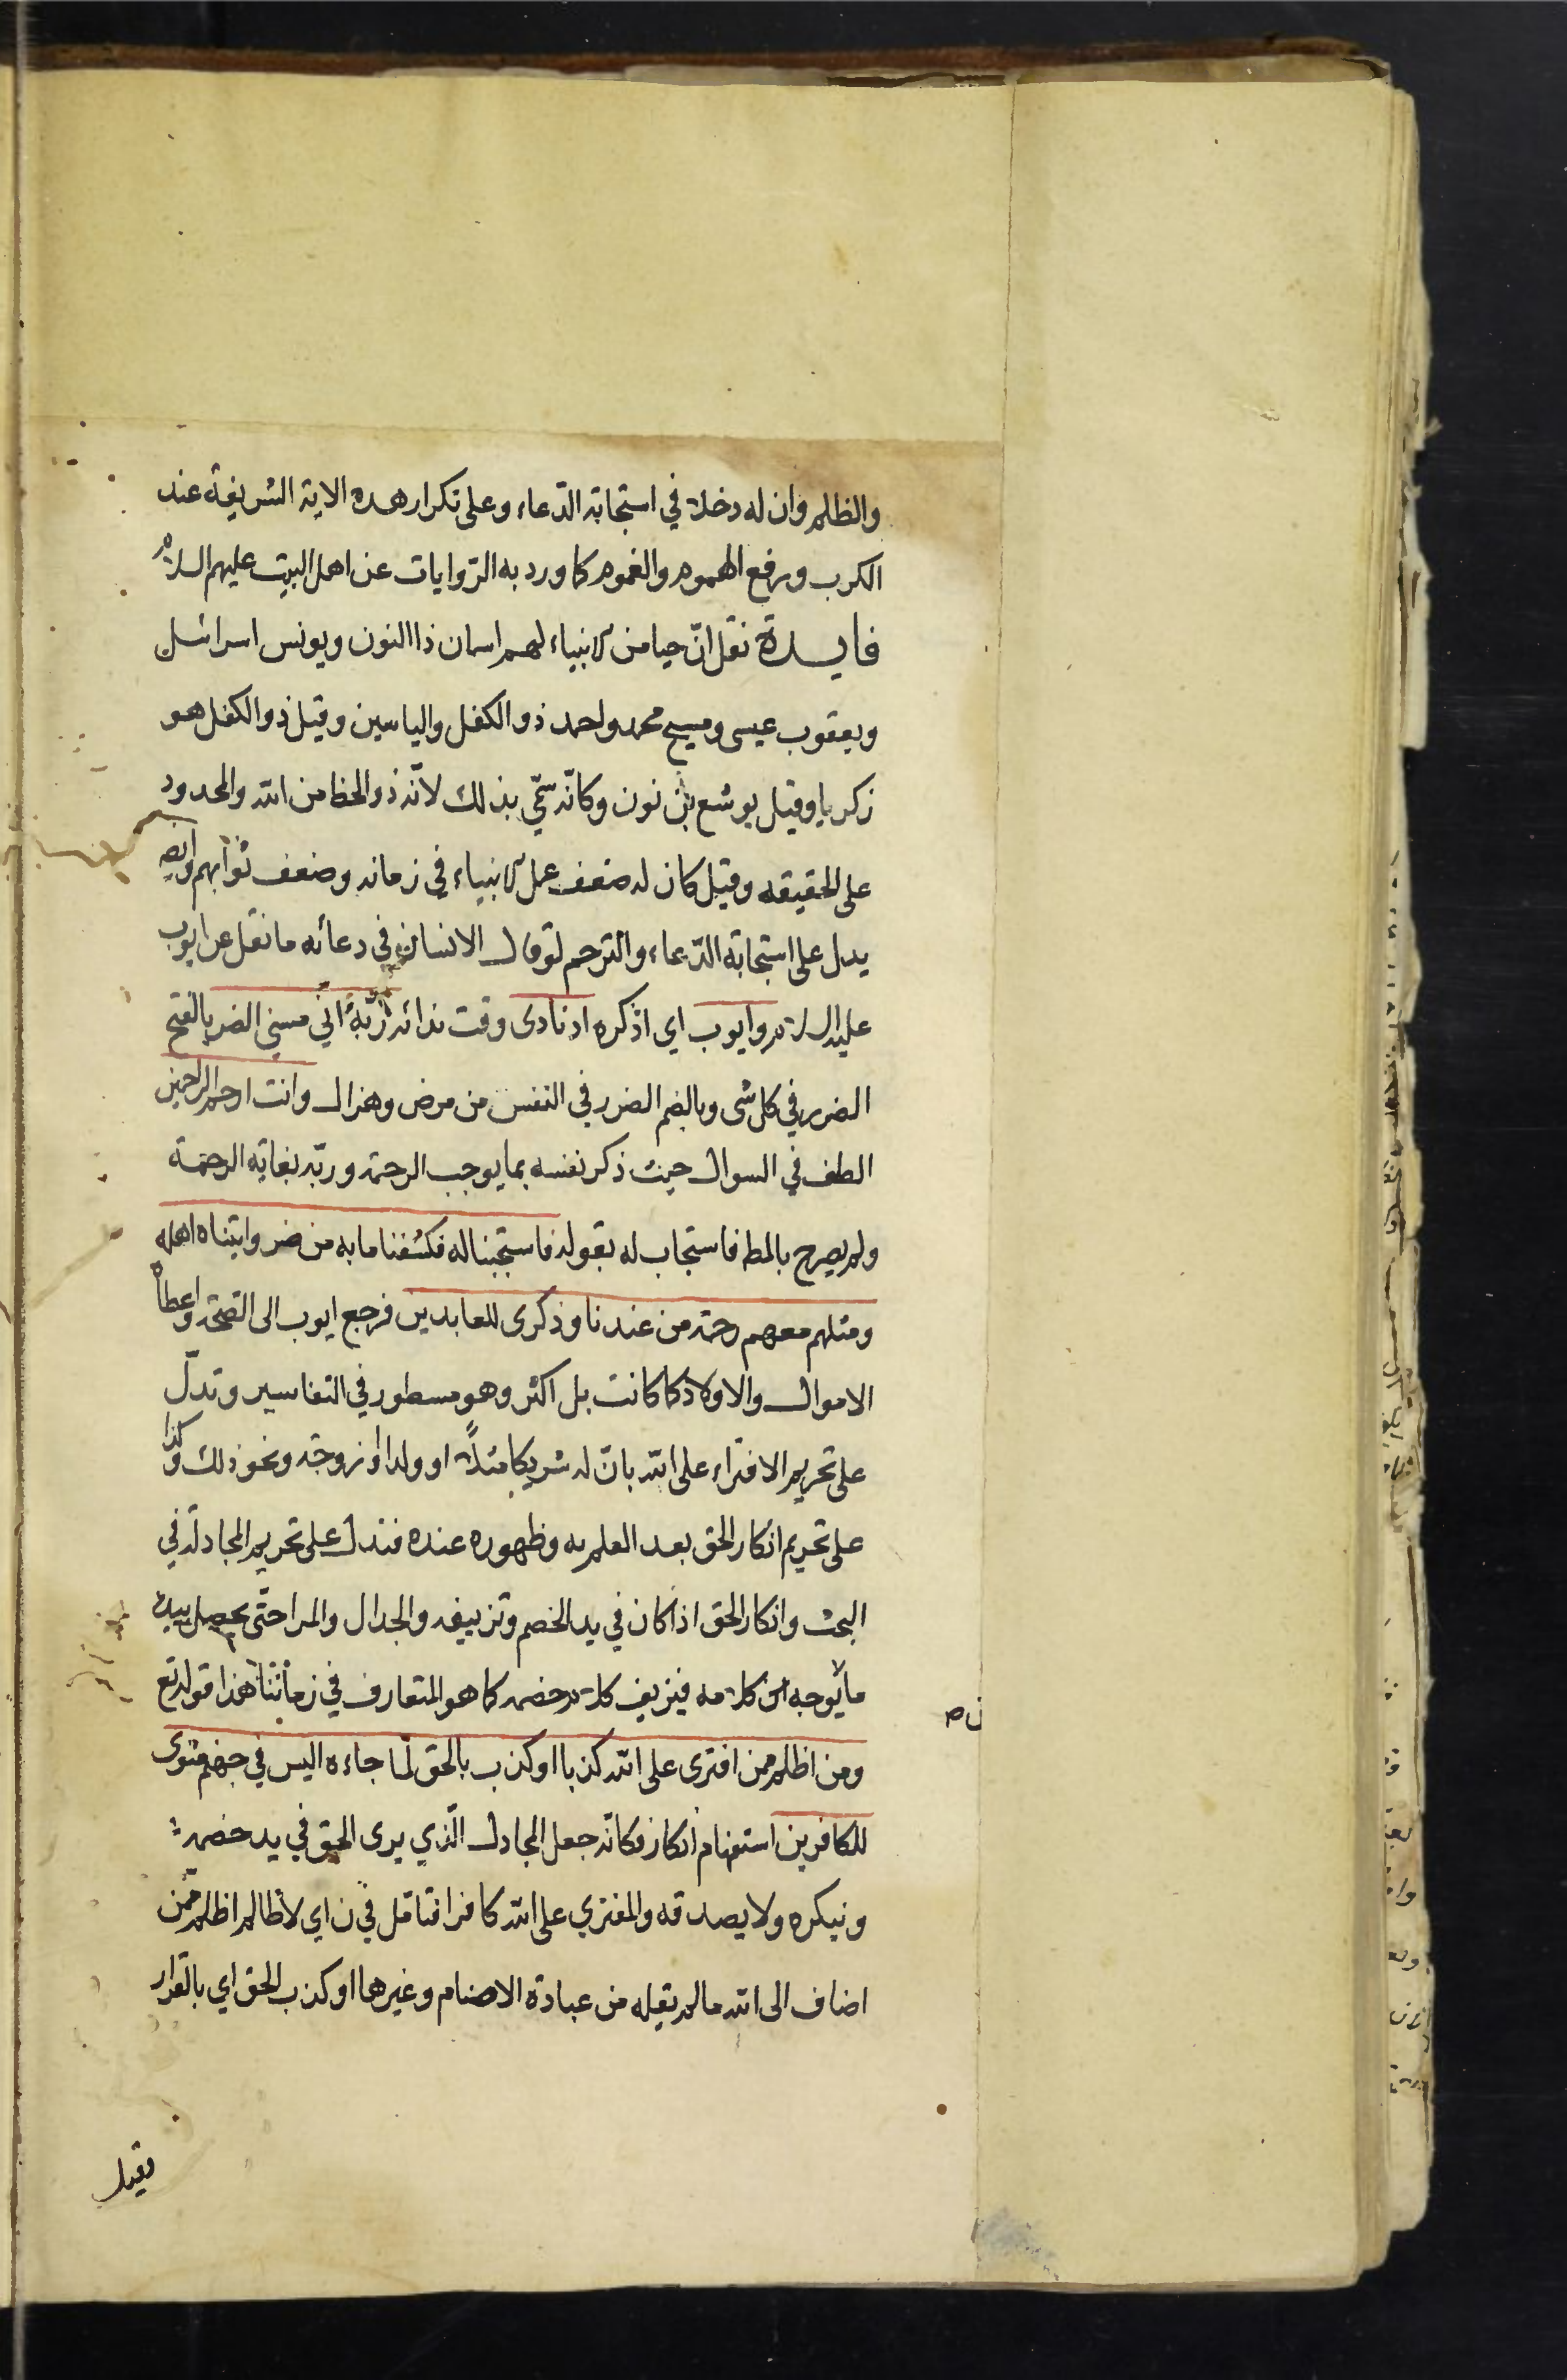 والظلم وان له دخلا في استجابة الدّعاء وعلى تكرار هده الاية الشريفة عند
الكرب ورفع الهموم والغموم كما ورد به الرّوايات عن اهل البيت عليهم السلام
فايدة نقل انّ من الانبياء لهم اسمان ذا النون ويونس اسرائيل
ويعقوب عيسى ومسيح محمد واحمد ذو الكفل والياسين وقيل ذو الكفل هو
زكريا وقيل يوشع بن نون وكانّه سمّي بذلك لانّه ذو الحظ من الله والمحدود
على الحقيقه وقيل كان له ضعف عمل الانبياء في زمانه وضعف ثوابهم وايضا
يدل على استجابة الدّعاء والترحم لو قال الانسان في دعائه ما نقل عن ايوب
عليه السلام وايوب اي اذكره اذ نادى وقت ندائه ربّه انّي مسني الضر بالفتح
الضرر في كل شى وبالضم الضرر في النفس من مرض وهزال وانت ارحم الراحمين
الطف في السوال حيث ذكر نفسه بما يوجب الرحمة وربّه بغاية الرحمة
ولم يصرح بالمط فاستجاب له بقوله فاستجبنا له فكشفنا ما به من ضر واتيناه اهله
ومثلهم معهم رحمة من عندنا وذكرى للعابدين فرجع ايوب الى الصّحّة واعطاه
الاموال والاولاد كما كانت بل اكثر وهو مسطور في التفاسير وتدلّ
على تحريم الافتراء على الله بانّ له شريكا مثلاً او ولدا او زوجة ونحو ذلك وكذا
على تحريم انكار الحق بعد العلم به وظهوره عنده فتدل على تحريم المجادلة في
البحث وانكار الحق اذا كان في يد الخصم وتزييفه والجدال والمرا حتّى يحصل بيده
ما يوجه كلامه فيزيف كلام خصمه كما هو المتعارف في زماننا هذا قوله تع
ومن اظلم ممن افترى على الله كذبا او كذب بالحق لما جاءه اليس في جهنم مثوى
للكافرين استفهام انكار فكانّه جعل المجادل الّذي يرى الحق في يد خصمه
وينكره ولا يصدقه والمفتري على الله كافرا فتامّل في ن اي لا ظالم اظلم ممّن
اضاف الى الله ما لم يقله من عبادة الاصنام وغيرها او كذب الحق اي بالقرار